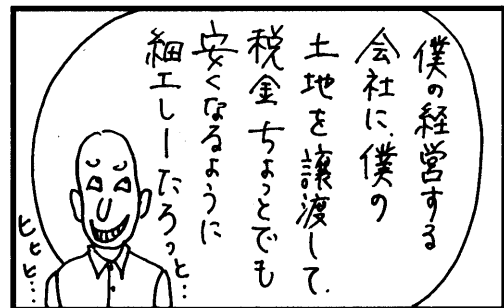 僕の経営する
会社に、僕の
土地を譲渡して、
税金ちょっとでも
安くなるように
細工しーたろっと…
ヒヒヒ…